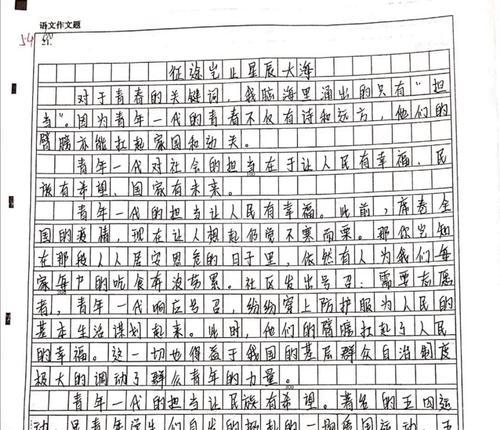 语文作文题
54
征途岂止星辰大海
对于青春的关键词，我脑海里涌出的只有“担
当”。因为青年一代的青春不仅有诗和远方，他们的
臂膀亦能扛起家国和功夫。
青年一代对社会的担当在于让人民有幸福、民
族有希望、国家有未来。
青年一代的担当让人民有幸福。此前，席卷全
国的疫情，现在让人想起仍觉不寒而栗。那你岂知
在那段人人居安思危的日子里，依然有人为我们每
家每户的吃食奔波劳累。社区发出号召，需要志愿
者，青年一代响应号召，纷纷穿上防护服为人民的
基本生活谋划起来。此时，他们的臂膀扛起了人民
的幸福。这一切也得益于我国的基层群众自治制度
极大的调动了群众青年的力量。
青年一代的担当让民族有希望。著名的五四运
动，是青年学生们自发的一期爱国运动，五